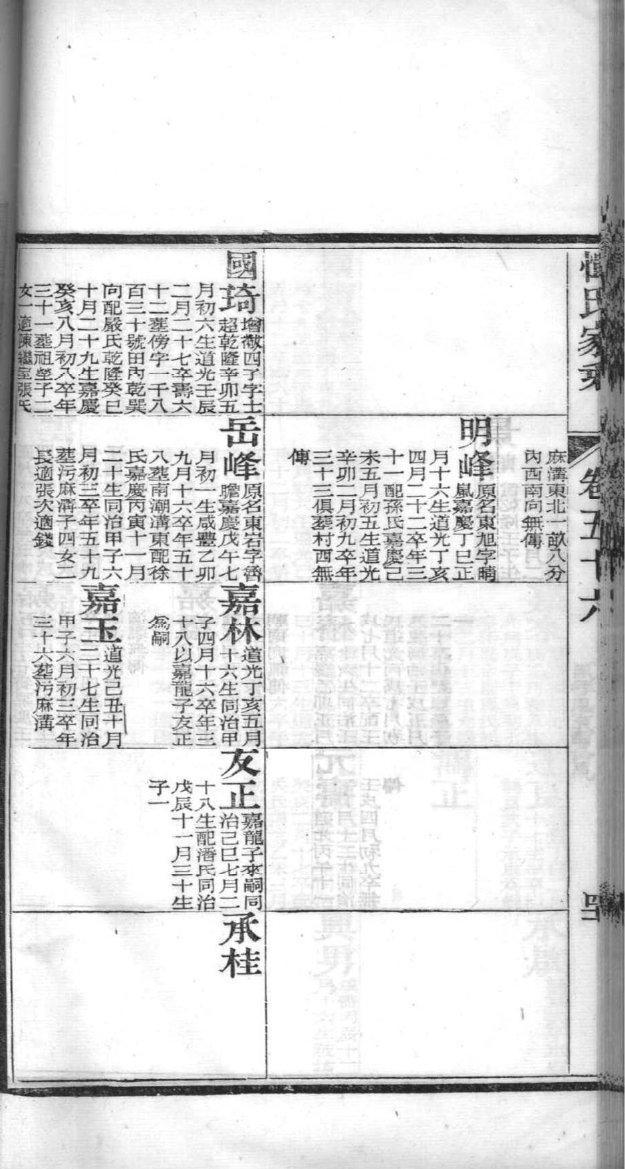 氏家
卷五十六
麻溝東北一畝八分
內西南向無傳
明峰
原名東旭字晴
嵐嘉慶丁巳正
月十六生道光丁亥
四月二十二卒年三
十一配孫氏嘉慶己
未五月初五生道光
辛卯二月初九卒年
三十三俱葬村西無
傳
國琦
增徵四子字士
超乾隆辛卯五
月初六生道光壬辰
二月二十七卒壽六
十二葬傍字一千八
百三十號田丙乾巽
向配嚴氏乾隆癸巳
十月二十九生嘉慶
癸亥八月初八卒年
三十一葬祖塋子二
女一適陳繼室張氏
岳峰
原名東岩字魯
瞻嘉慶戊午七
月初一生咸豐乙卯
九月十六卒年五十
八葬南潮溝東配徐
氏嘉慶丙寅十一月
二十生同治甲子六
月初三卒年五十九
葬污麻溝子四女二
長適張次適錢
嘉林
道光丁亥五月
十六生同治甲
子四月十六卒年三
十八以嘉龍子友正
為嗣
嘉玉
道光己丑十月
二十七生同治
甲子六月初三卒年
三十六葬污麻溝
友正
嘉龍子來嗣同
治己巳七月二
十八生配潘氏同治
戊辰十一月三十生
子一
承桂